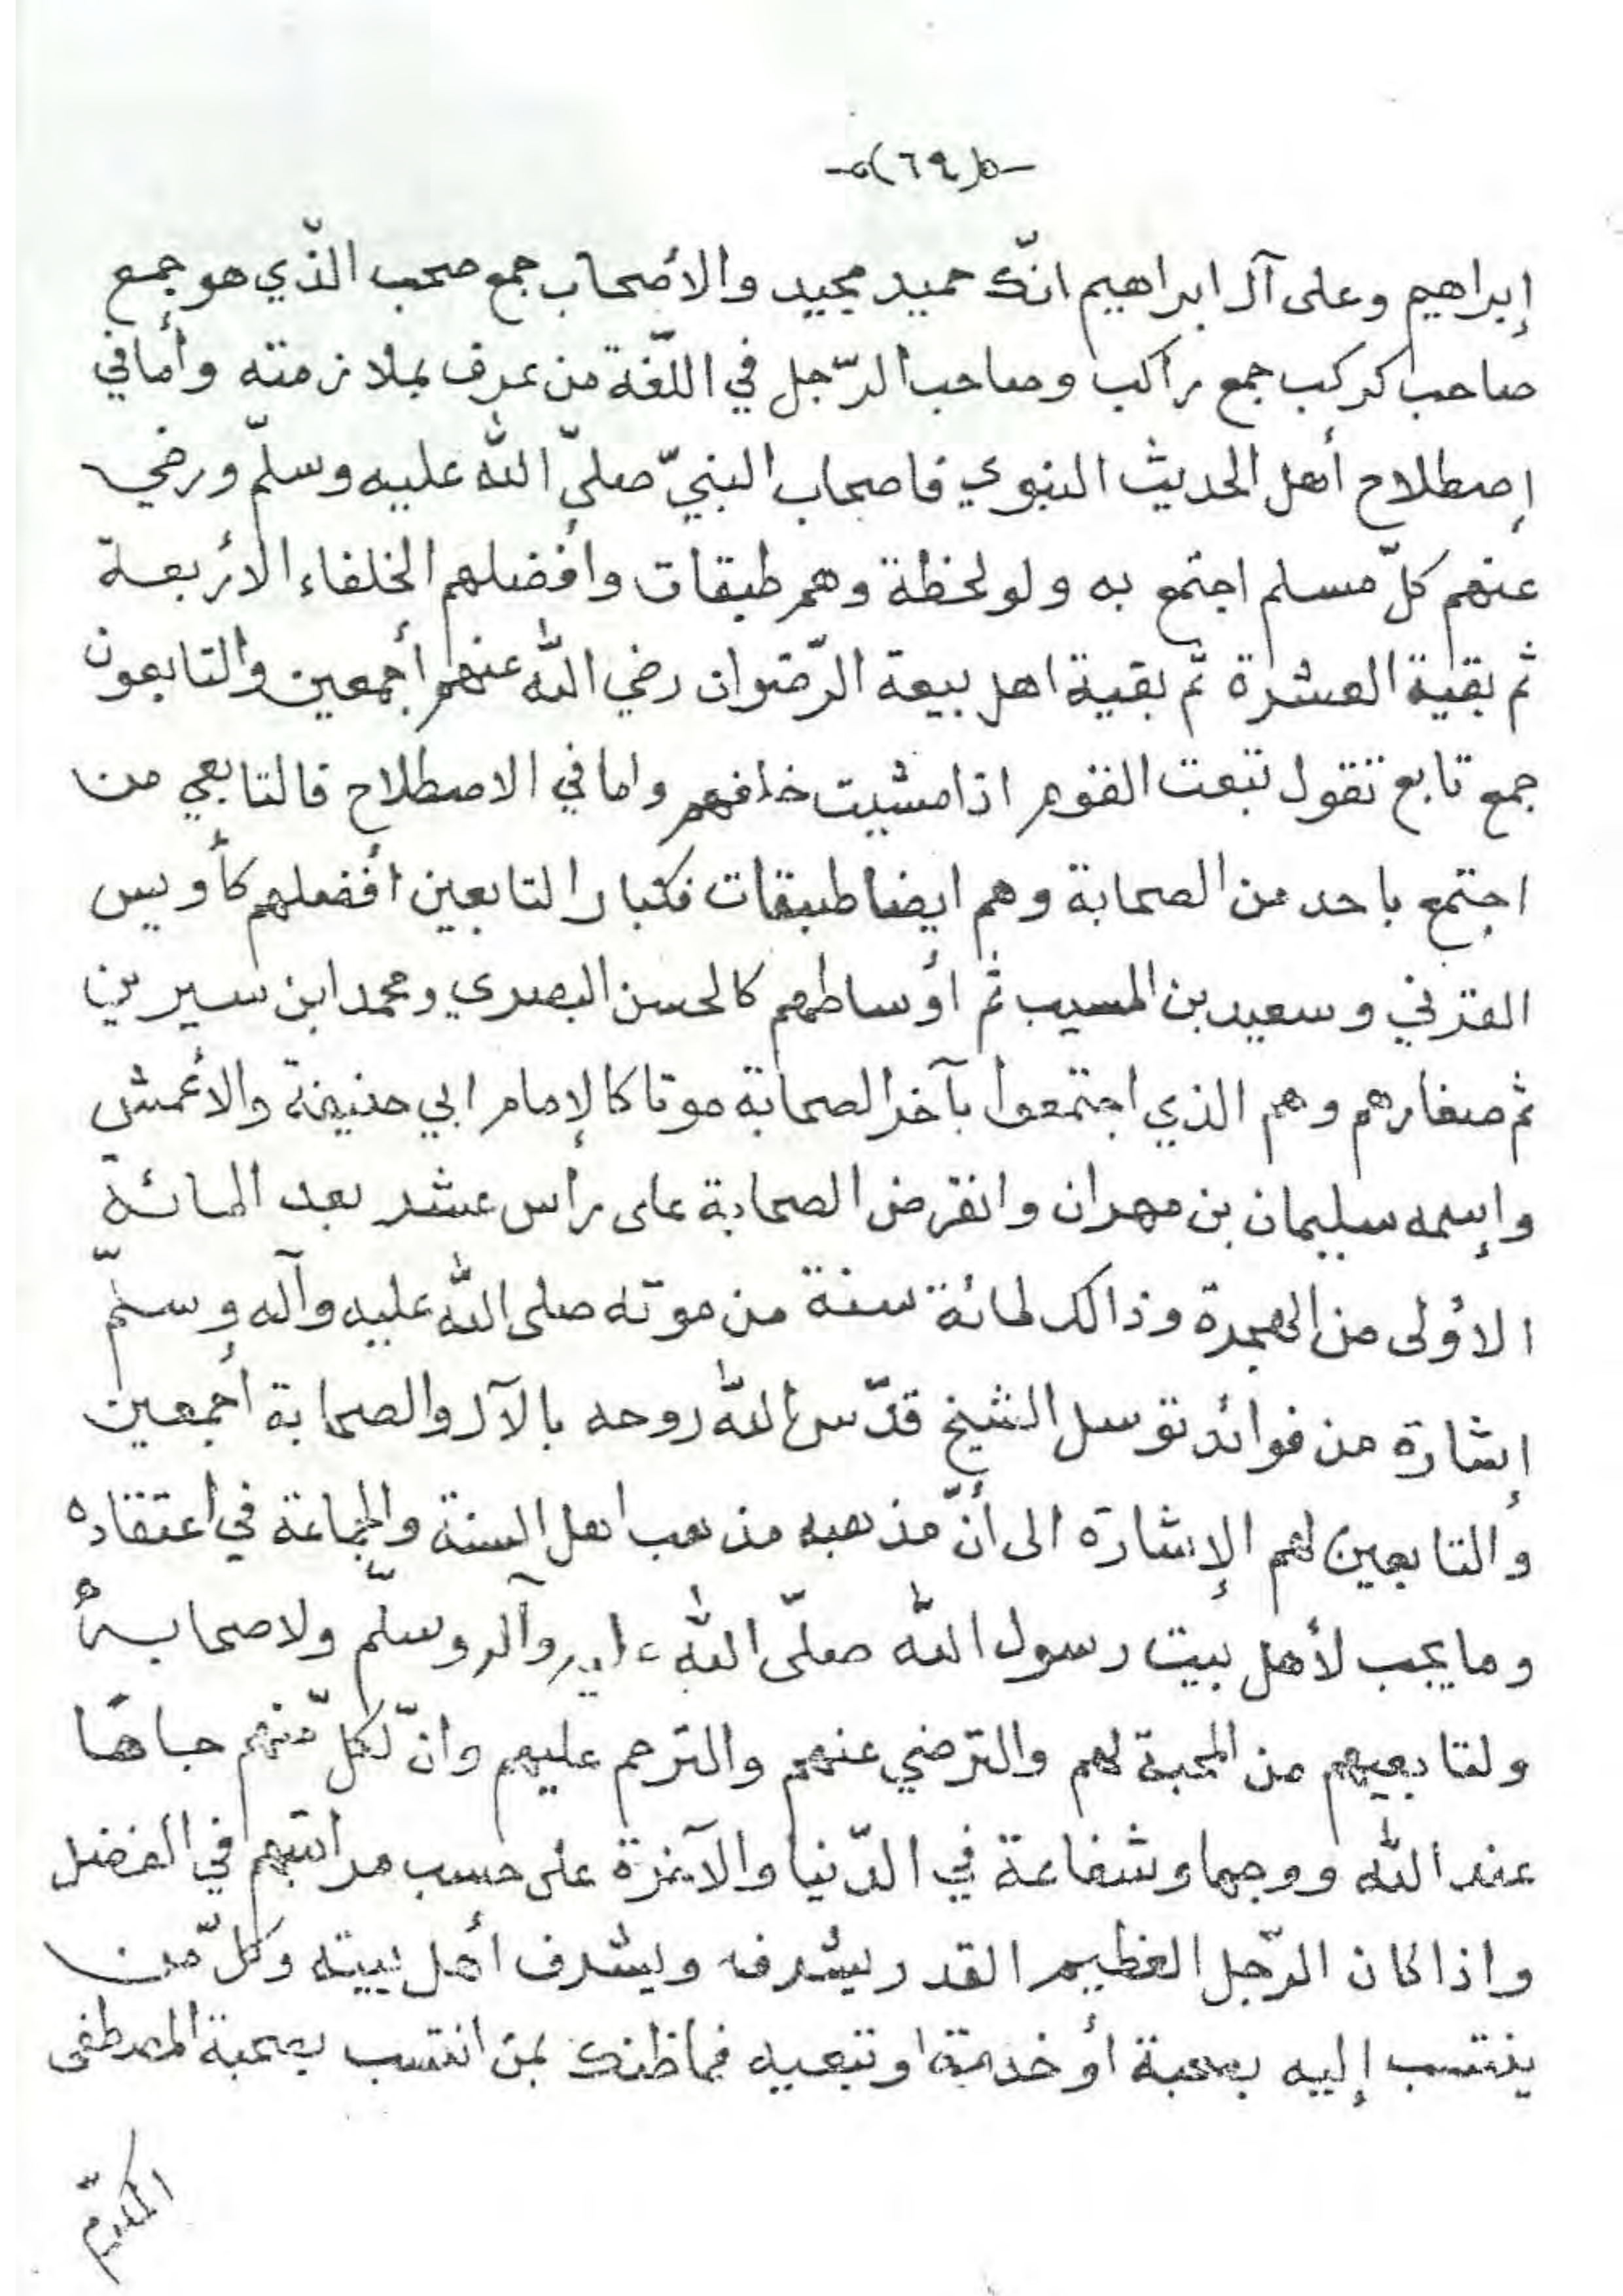 -٥(٦٩)٥-
إبراهيم وعلى آل ابراهيم انّك حميد مجيد والأصحاب جمع صحب الّذي هو جمع
صاحب كركب جمع راكب وصاحب الرّجل في اللّغة من عرف بملازمته وأما في
إصطلاح أهل الحديث النبوي فاصحاب النبيّ صلىّ اللّه عليه وسلّم ورضي
عنهم كلّ مسلم اجتمع به ولو لحظة وهم طبقات وأفضلهم الخلفاء الأربعة
ثم بقية العشرة ثم بقية اهل بيعة الرّضوان رضي اللّه عنهم أجمعين والتابعون
جمع تابع تقول تبعت القوم اذا مشيت خلفهم واما في الاصطلاح فالتابعي من
اجتمع باحد من الصحابة وهم ايضا طبقات فكبار التابعين أفضلهم كأويس
القرني وسعيد بن المسيب ثم أوساطهم كالحسن البصري ومحمد ابن سيرين
ثم صغارهم وهم الذي اجتمعوا بآخر الصحابة موتا كالإمام ابي حنيفة والأعمش
وإسمه سليمان بن مهران وانقرض الصحابة على رأس عشر بعد المائة
الأولى من الهجرة وذالك لمائة سنة من موته صلى اللّه عليه وآله وسلّم
إشارة من فوائد توسل الشيخ قدّس اللّه روحه بالآل والصحابة أجمعين
والتابعين لهم الإشارة الى أنّ مذهبه مذهب اهل السنة والجماعة في اعتقاده
وما يجب لأهل بيت رسول اللّه صلّى اللّه عليه وآله وسلّم ولاصحابه
ولتابعيهم من المحبة لهم والترضي عنهم والترحم عليهم وانّ لكلّ منهم جاهًا
عند اللّه ووجها وشفاعة في الدّنيا والآخرة على حسب مراتبهم في الفضل
واذا كان الرّجل العظيم القدر يشرفه ويشرف أهل بيته وكلّ من
ينتسب إليه بصحبة أو خدمة او تبعيه فما ظنك بمن انتسب بصحبة المصطفى
المكرّم